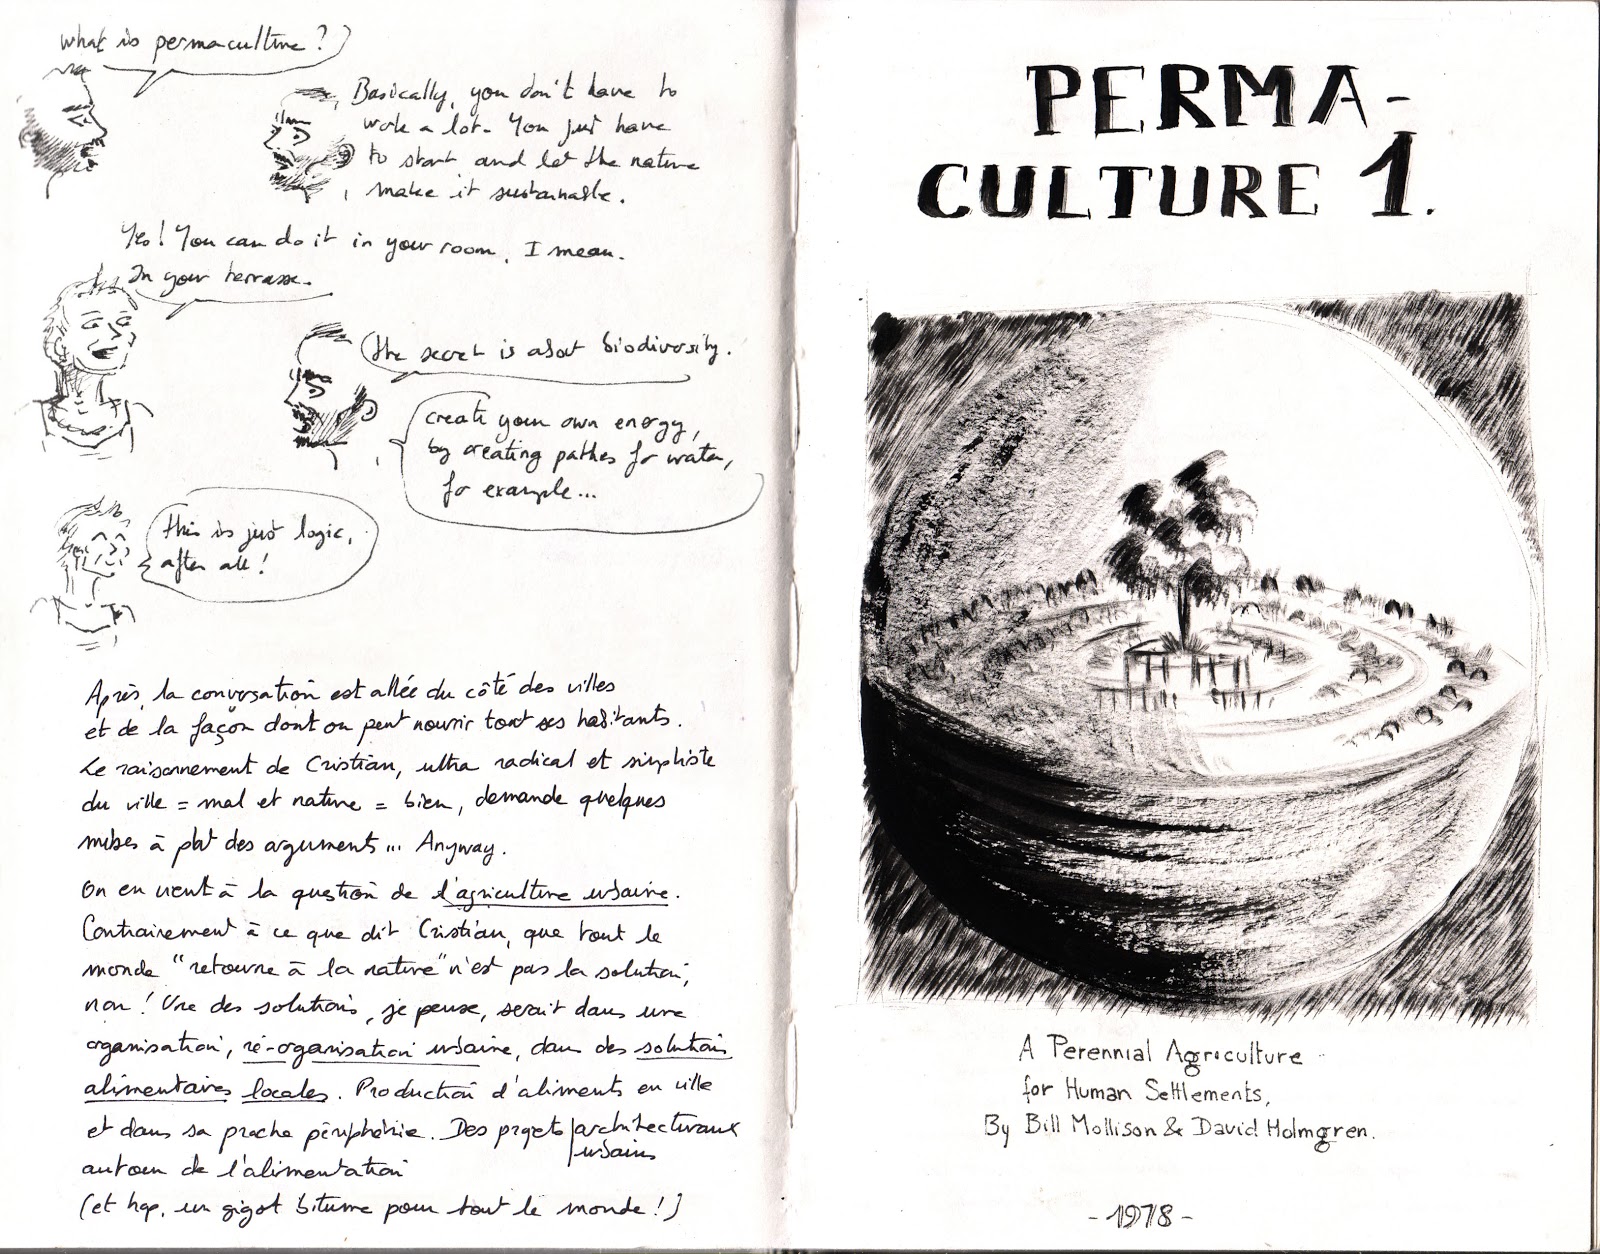 what is permaculture?
Basically, you don't have to
work a lot. You just have
to start and let the nature
make it sustainable.
Yes! You can do it in your room, I mean.
In your terrasse.
the secret is about biodiversity.
create your own energy,
by creating pathes for water,
for example...
this is just logic,
after all!
Après, la conversation est allée du côté des villes
et de la façon dont on peut nourrir tout ses habitants.
Le raisonnement de Cristian, ultra radical et simpliste
du ville = mal et nature = bien, demande quelques
mises à plat des arguments... Anyway.
On en vient à la question de l'agriculture urbaine.
Contrairement à ce que dit Cristian, que tout le
monde "retourne à la nature" n'est pas la solution,
non! Une des solutions, je pense, serait dans une
organisation, ré-organisation urbaine, dans des solutions
alimentaires locales. Production d'aliments en ville
et dans sa proche périphérie. Des projets architecturaux
urbains
autour de l'alimentation
(et hop, un gigot bitume pour tout le monde!)
PERMA-
CULTURE 1.
A Perennial Agriculture
for Human Settlements,
By Bill Mollison & David Holmgren.
- 1978 -